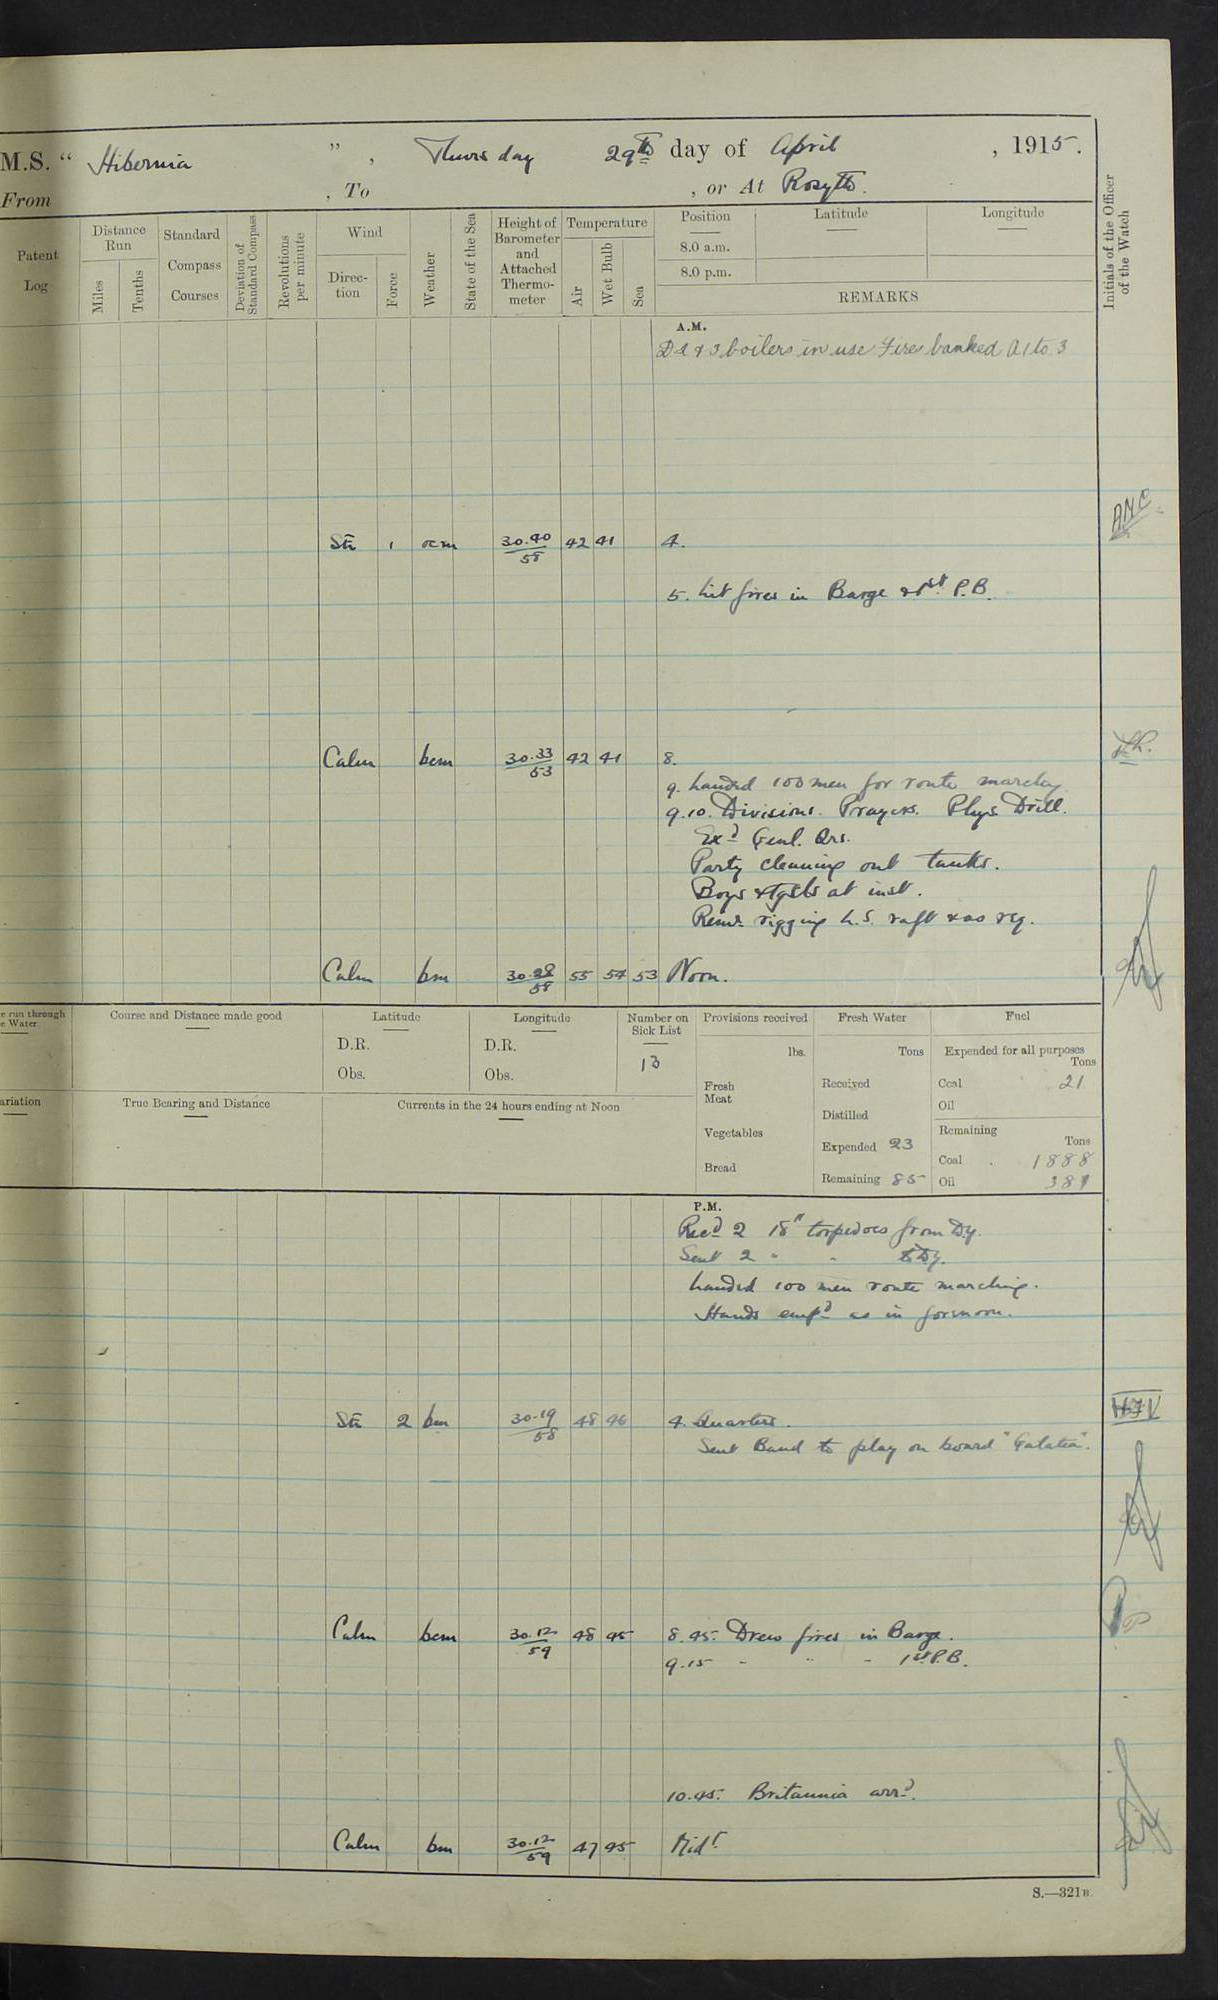 M.S. “ Hibernia ” , Thursday 29th day of April , 1915.
From , To , or At Rosyth.
Patent Log
Distance Run
Miles
Tenths
Standard Compass Courses
Deviation of Standard Compass
Revolutions per minute
Wind
Direction
Force
Weather
State of the Sea
Height of Barometer and Attached Thermometer
Temperature
Air
Wet Bulb
Sea
Position
8.0 a.m.
8.0 p.m.
Latitude
Longitude
REMARKS
Initials of the Officer of the Watch
A.M.
boilers in use Fires banked A 1 to 3
1 ocm 30.40/58 42 41 4.
5. Lit fires in Barge & 1st P.B.
Calm bcm 30.33/53 42 41 8.
9. Landed 100 men for route marchg
9.10. Divisions. Prayers. Phys Drill.
Exd Genl. Qrs.
Party cleaning out tanks.
Boys at inst.
Remr rigging L.S. raft & as req.
Calm bm 30.28/58 55 54 53 Noon.
e run through
e Water
Course and Distance made good
Latitude
D.R.
Obs.
Longitude
D.R.
Obs.
Number on Sick List
13
Provisions received
lbs.
Fresh Meat
Vegetables
Bread
Fresh Water
Tons
Received
Distilled
Expended 23
Remaining 85
Fuel
Expended for all purposes
Tons
Coal 21
Oil
Remaining
Tons
Coal 1888
Oil 381
ariation
True Bearing and Distance
Currents in the 24 hours ending at Noon
P.M.
Recd 2 18" torpedoes from Dy.
Sent 2 " " to Dy.
Landed 100 men route marching.
Hands empd as in forenoon.
2 bm 30.19/58 48 46 4. Quarters.
Sent Band to play on board "Galatea".
Calm bcm 30.12/59 48 45 8.45. Drew fires in Barge.
9.15 " " " 1st P.B.
10.45. Britannia arrd.
Calm bm 30.12/59 47 45 Midt
S.—321B.